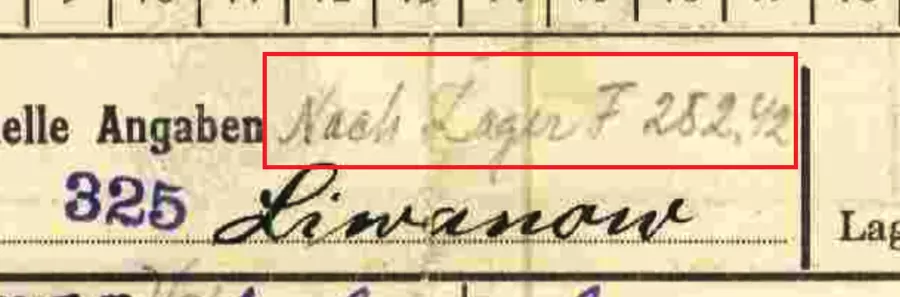 elle Angaben Nach Lager F 28.2.42
325 Liwanow
Lag